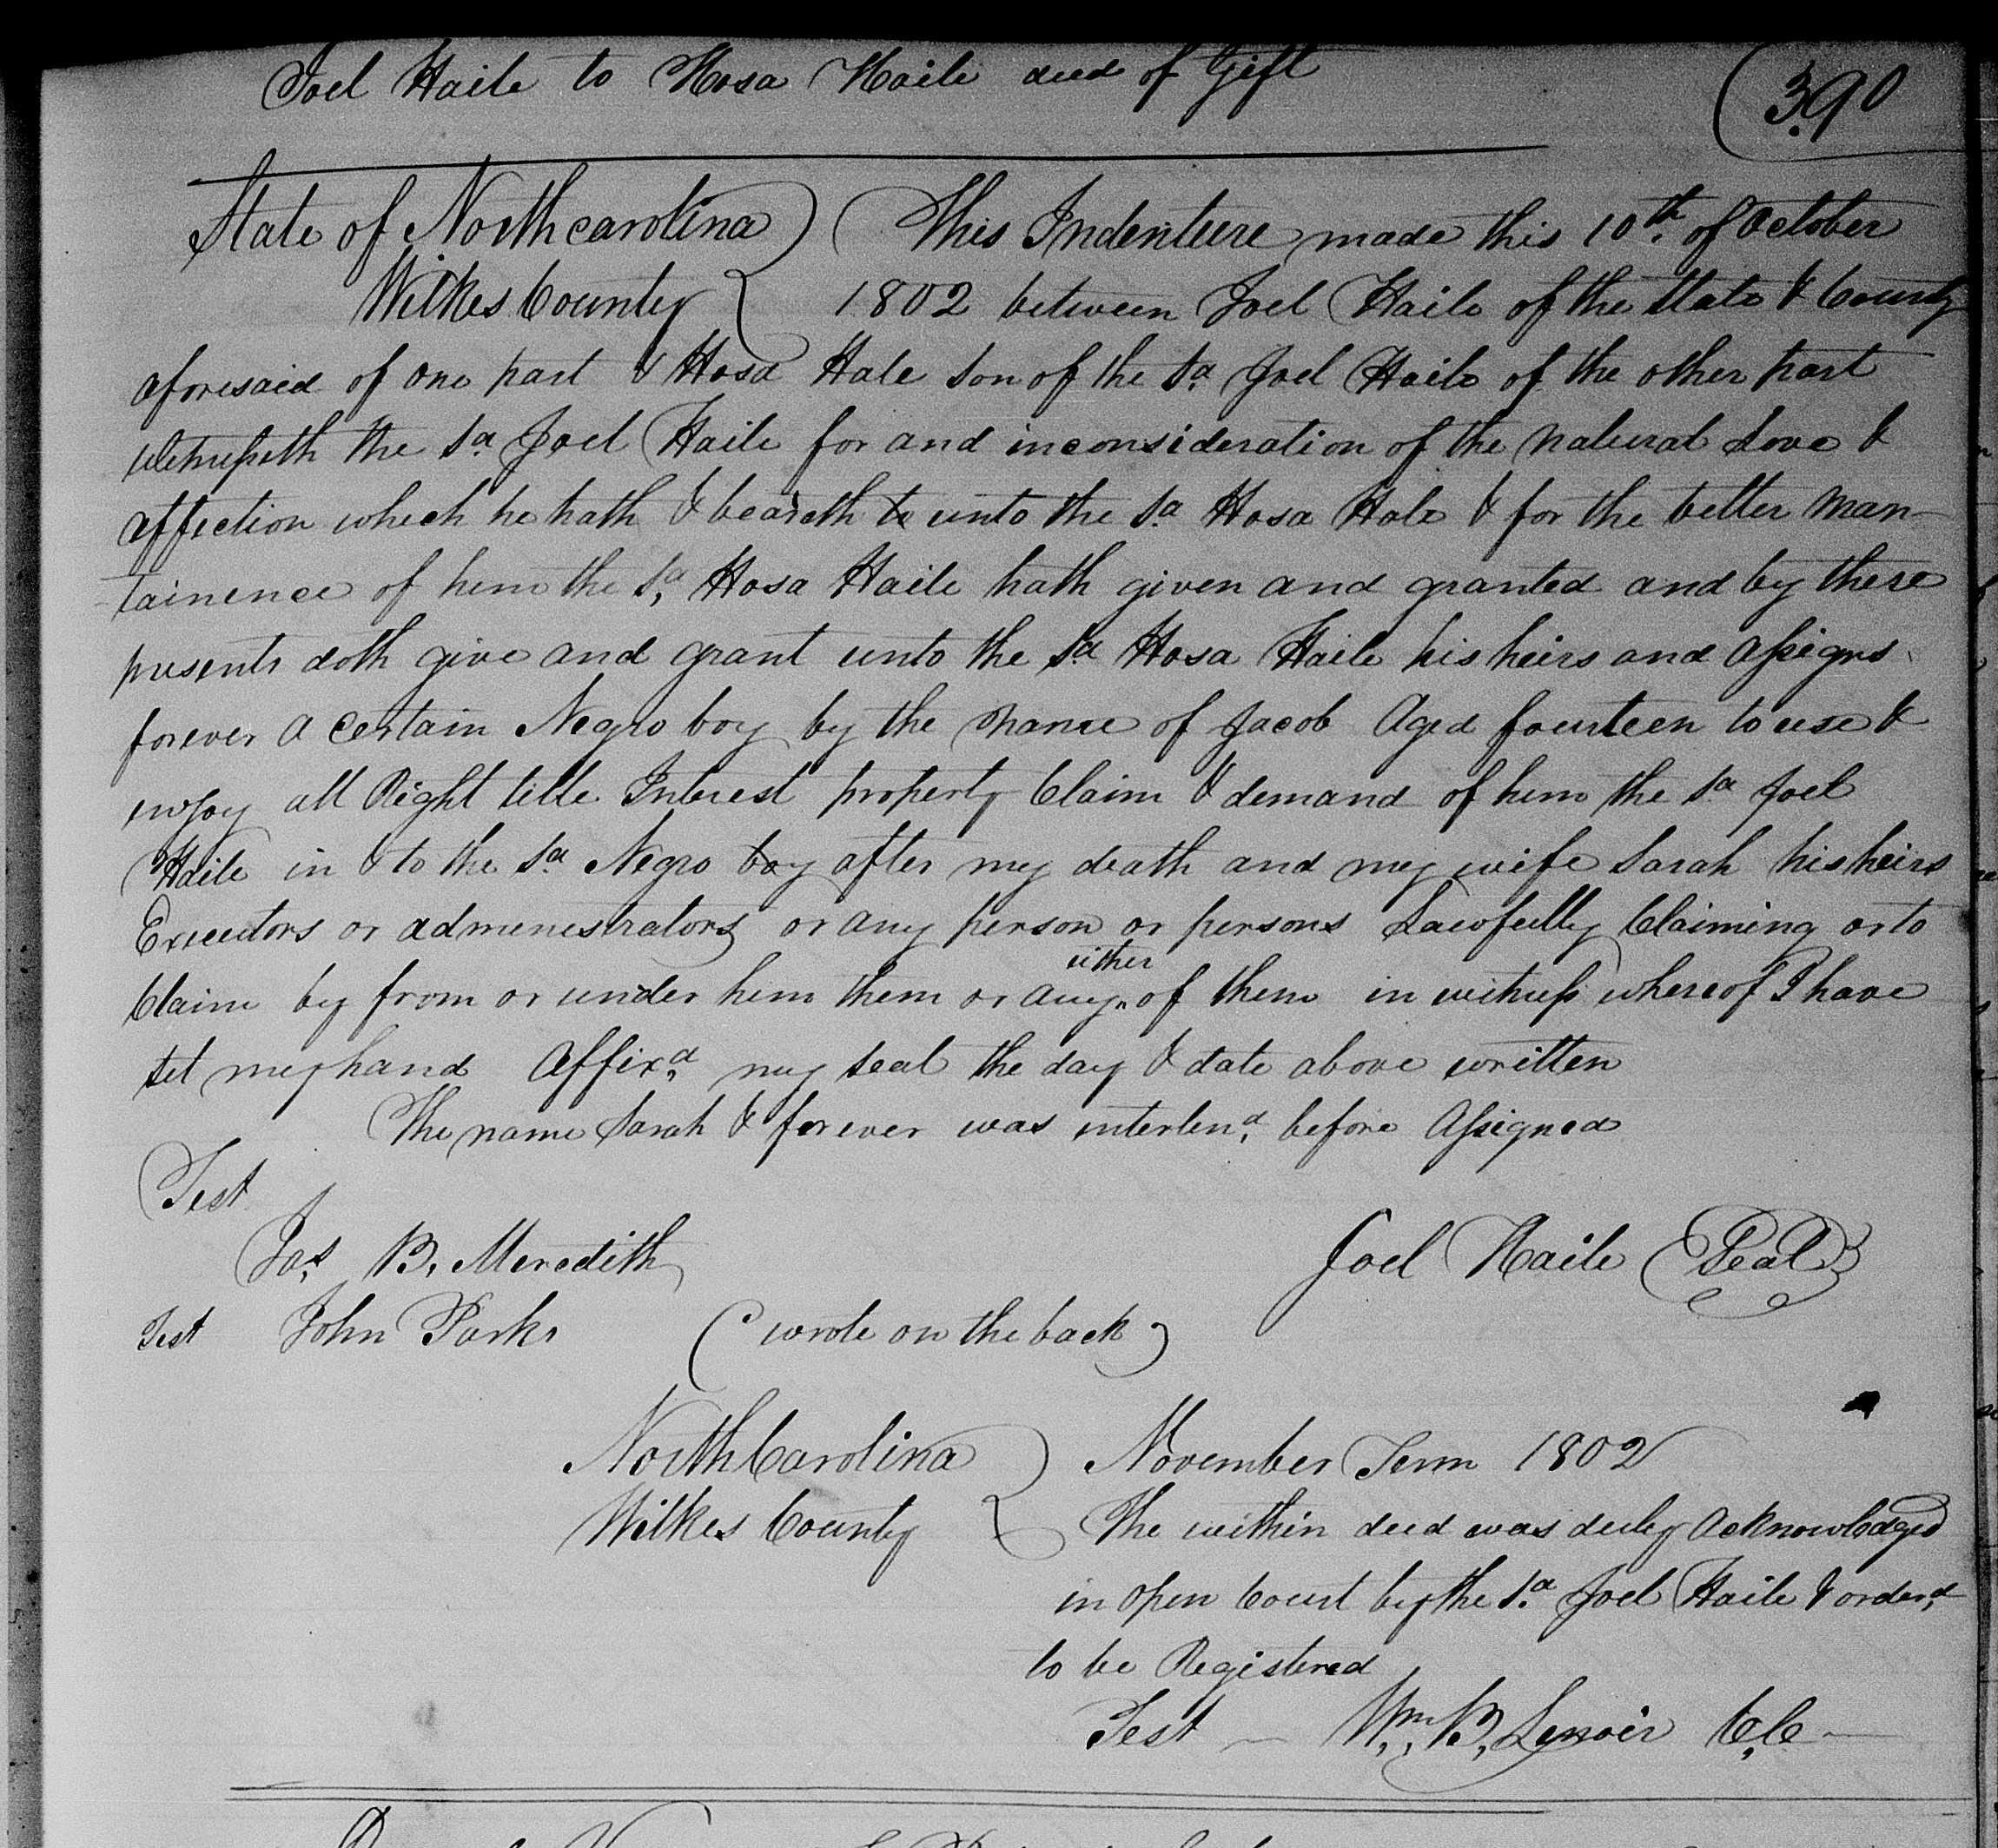 Joel Haile to Hosa Haile deed of Gift
390
State of North carolina This Indenture made this 10th of October
Wilkes County 1802 between Joel Haile of the State & County
aforesaid of one part & Hosa Hale Son of the sd Joel Haile of the other part
witnesseth the sd Joel Haile for and inconsideration of the natural Love &
affection which he hath & beareth to unto the sd Hosa Hale & for the better man-
-tainence of him the sd Hosa Haile hath given and granted and by these
presents doth give and grant unto the sd Hosa Haile his heirs and assigns
forever a certain Negro boy by the name of Jacob Aged fourteen to use &
enjoy all Right title Interest property Claim & demand of him the sd Joel
Haile in & to the sd Negro boy after my death and my wife Sarah his heirs
Executors or admenestrators or any person or persons Lawfully Claiming or to
either
Claim by from or under him them or any of them in witness whereof I have
set my hand Affixd my seal the day & date above written
The name Sarah & forever was interlend before Assigned
Test
Jas B. Meredith Joel Haile Seal
Test John Parks (wrote on the back)
North Carolina November Term 1802
Wilkes County The within deed was duly Acknowledged
in open Court by the sd Joel Haile & orderd
to be Registered
Test — Wm. B. Lenoir C,C —